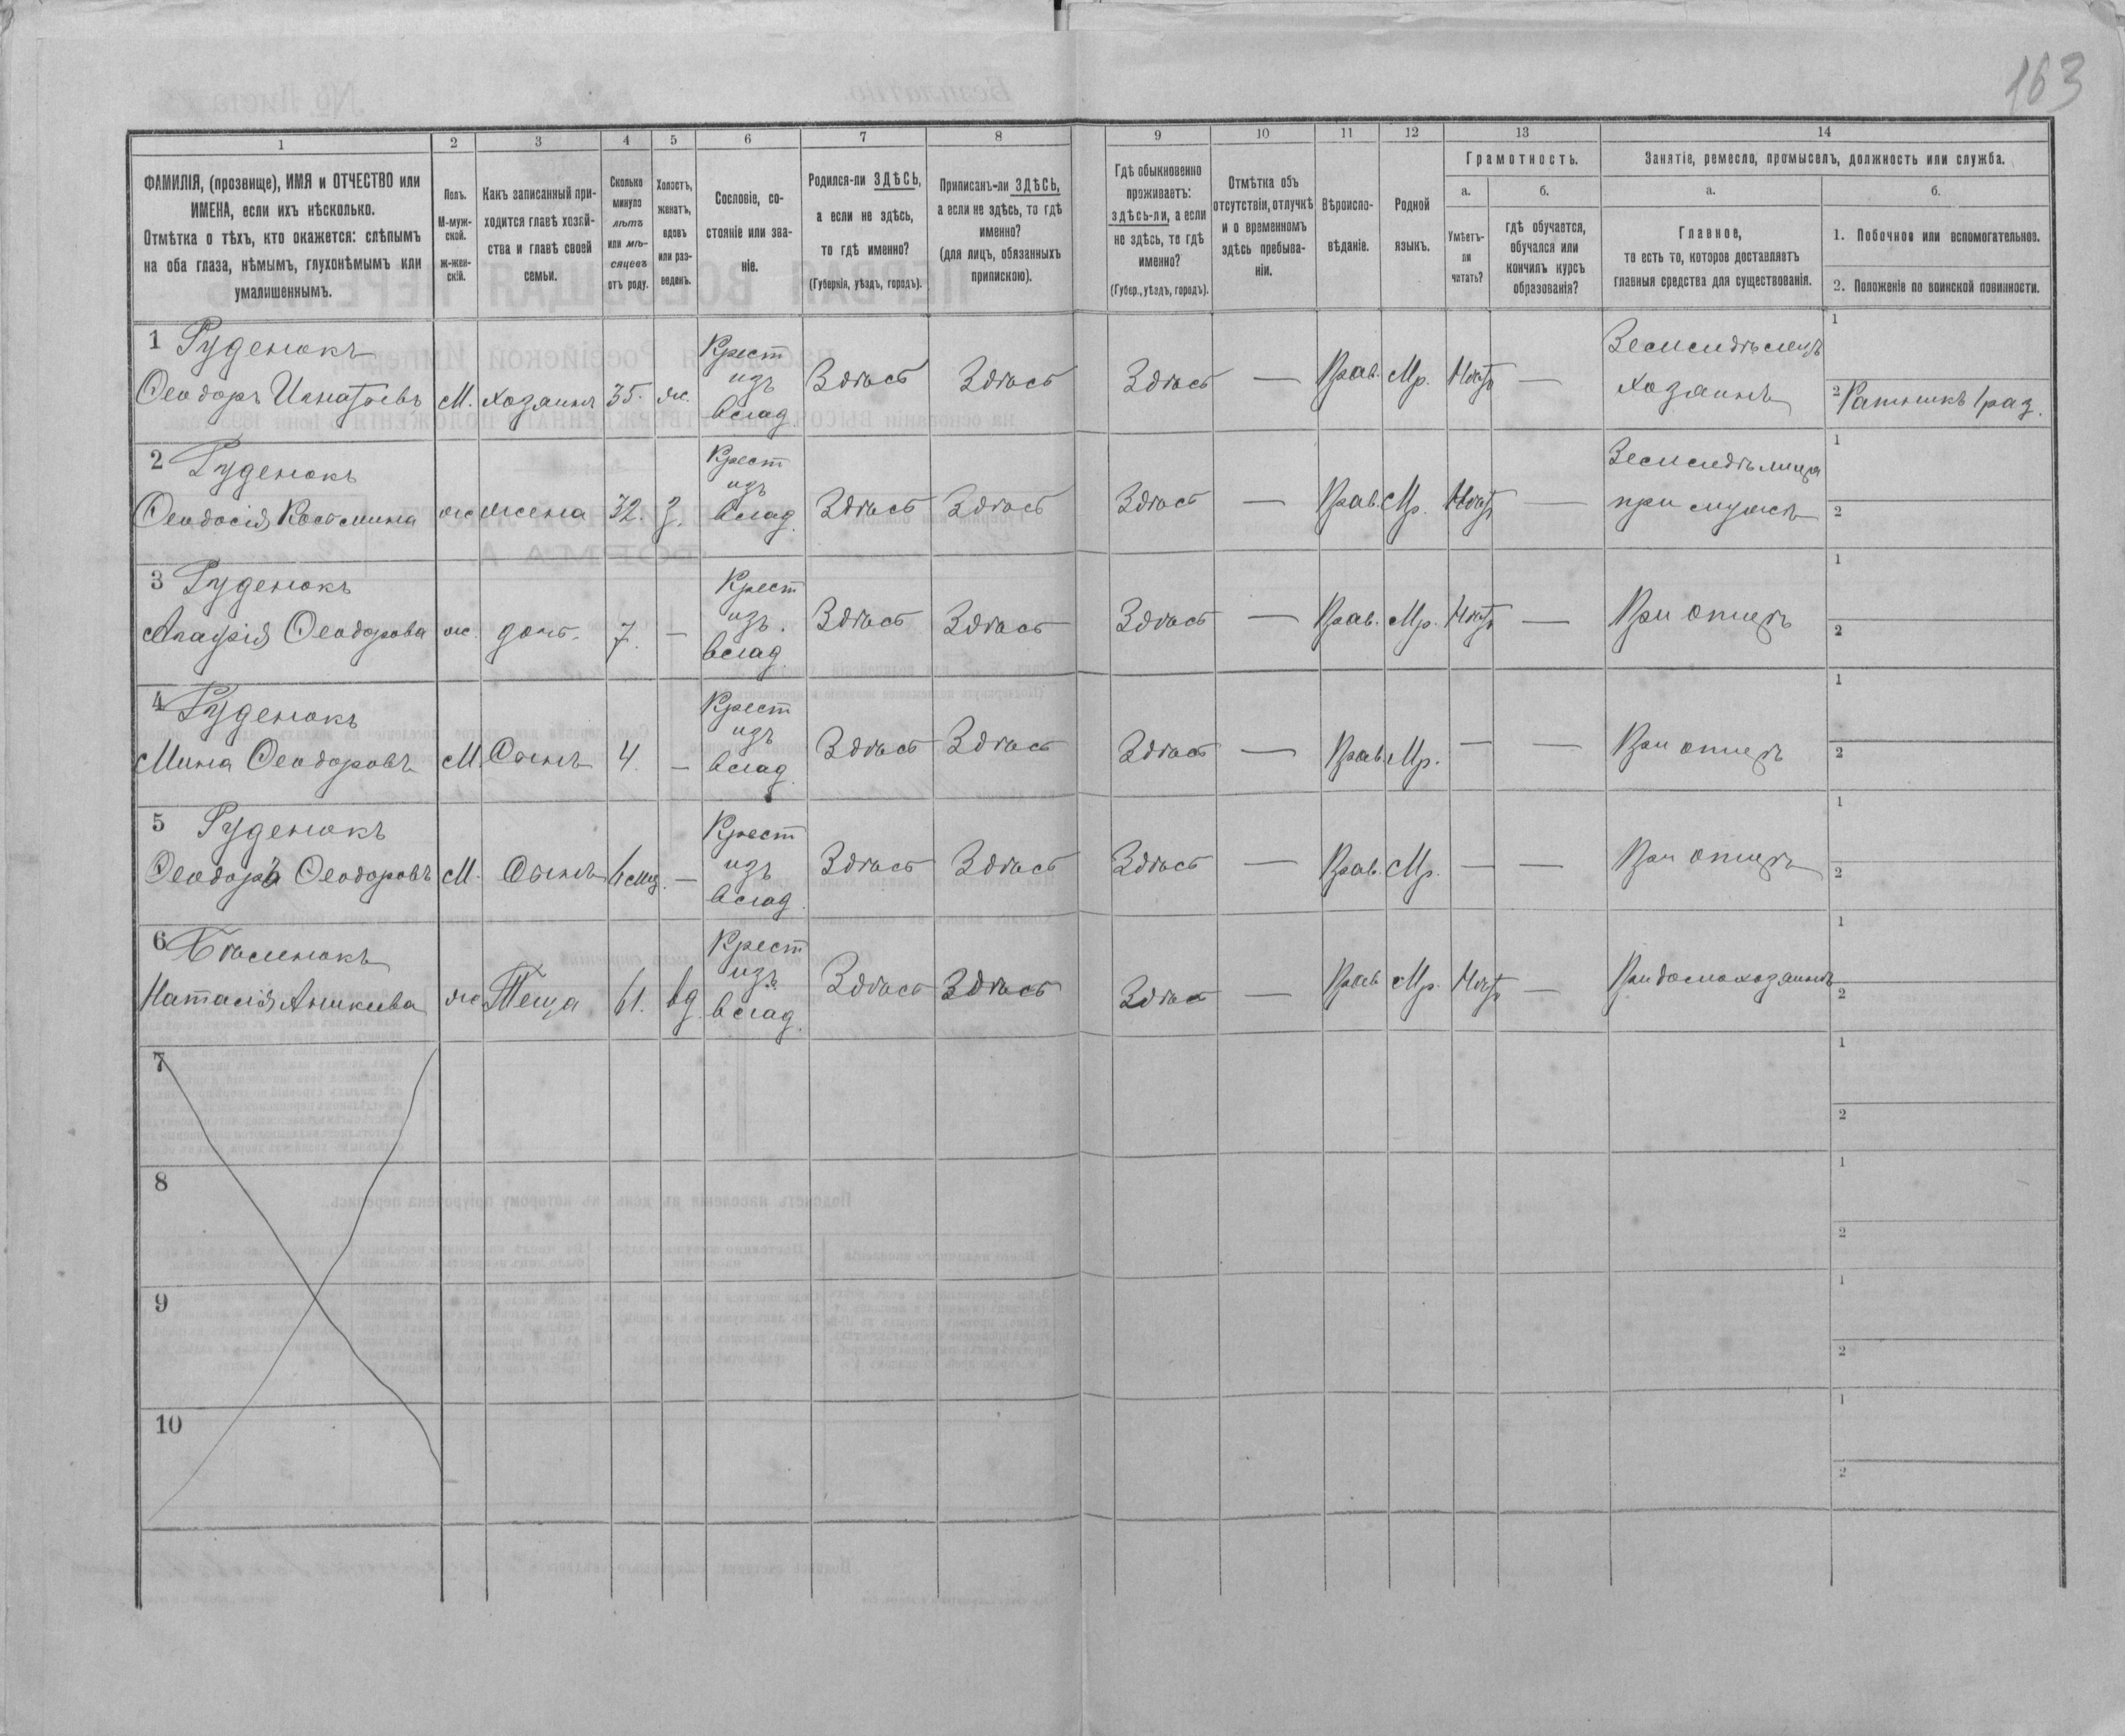 163
1 2 3 4 5 6 7 8 9 10 11 12 13 14
ФАМИЛІЯ, (прозвище), ИМЯ и ОТЧЕСТВО или
ИМЕНА, если ихъ нѣсколько.
Отмѣтка о тѣхъ, кто окажется: слѣпымъ
на оба глаза, нѣмымъ, глухонѣмымъ или
умалишеннымъ.
Полъ.
М-муж-
ской.
ж-жен-
скій.
Какъ записанный при-
ходится главѣ хозяй-
ства и главѣ своей
семьи.
Сколько
минуло
лѣтъ
или мѣ-
сяцевъ
отъ роду.
Холостъ,
женатъ,
вдовъ
или раз-
веденъ.
Сословіе, со-
стояніе или зва-
ніе.
Родился-ли ЗДѢСЬ,
а если не здѣсь,
то гдѣ именно?
(Губернія, уѣздъ, городъ).
Приписанъ-ли ЗДѢСЬ,
а если не здѣсь, то гдѣ
именно?
(для лицъ, обязанныхъ
припискою).
Гдѣ обыкновенно
проживаетъ:
здѣсь-ли, а если
не здѣсь, то гдѣ
именно?
(Губер., уѣздъ, городъ).
Отмѣтка объ
отсутствіи, отлучкѣ
и о временномъ
здѣсь пребыва-
ніи.
Вѣроиспо-
вѣданіе.
Родной
языкъ.
Грамотность.
а.
Умѣетъ-
ли
читать?
б.
гдѣ обучается,
обучался или
кончилъ курсъ
образованія?
Занятіе, ремесло, промыселъ, должность или служба.
а.
Главное,
то есть то, которое доставляетъ
главныя средства для существованія.
б.
1. Побочное или вспомогательное.
2. Положеніе по воинской повинности.
1 Руденокъ
Ѳеодоръ Игнатьевъ М. хозяинъ 35. ж. Крест изъ влад. Здѣсь Здѣсь Здѣсь — Прав. Мр. Нѣтъ — Земледѣлецъ хозяинъ 1 2 Ратникъ 1 раз.
2 Руденокъ
Ѳеодосія Космина ж жена 32. З. Крест изъ влад. Здѣсь Здѣсь Здѣсь — Прав. Мр. Нѣтъ — при мужѣ 1 2
3 Руденокъ
Ѳеодорова ж. дочь. 7. — Крест изъ влад. Здѣсь Здѣсь Здѣсь — Прав. Мр. Нѣтъ — При отцѣ 1 2
4 Руденокъ
Мина Ѳеодоровъ М. Сынъ 4. — Крест изъ влад. Здѣсь Здѣсь Здѣсь — Прав. Мр. — — При отцѣ 1 2
5 Руденокъ
Ѳеодоръ Ѳеодоровъ М. Сынъ — Крест изъ влад. Здѣсь Здѣсь Здѣсь — Прав. Мр. — — При отцѣ 1 2
6
Наталія ж Теща 61. вд. Крест изъ влад. Здѣсь Здѣсь Здѣсь — Прав Мр. Нѣтъ — При домохозяинѣ 1 2
7 1 2
8 1 2
9 1 2
10 1 2